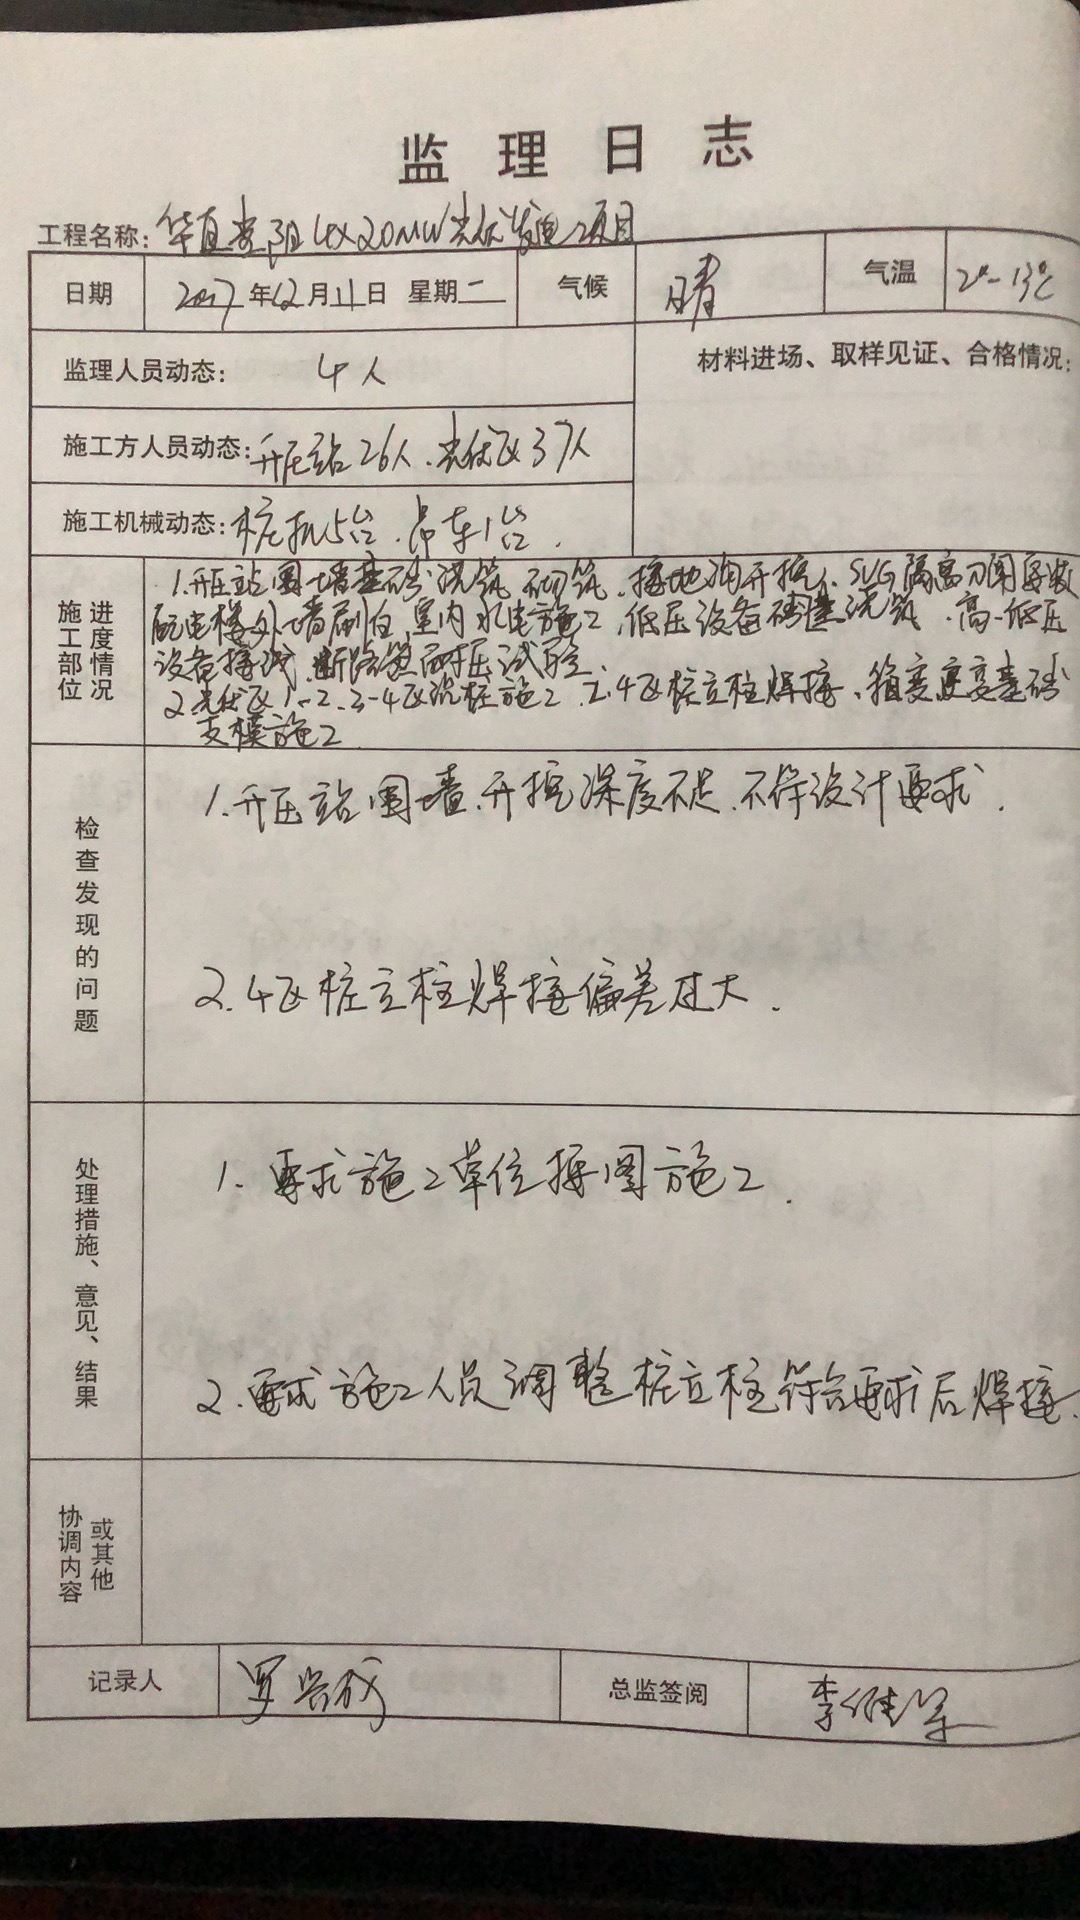 监理日志
工程名称: 4X20MW光伏发电项目
日期 2017年12月 日 星期二 气候 晴 气温 2°-13℃
监理人员动态: 4人 材料进场、取样见证、合格情况:
施工方人员动态: 升压站26人、光伏区37人
施工机械动态: 桩机5台、吊车1台.
施工部位 进度情况
1.升压站围墙基础浇筑、砌筑、接地沟开挖、SVG隔离刀闸安装
配电楼外墙刷白,室内水电施工、低压设备基础浇筑、高、低压
设备接线、断路器耐压试验
2.光伏区1、2、3-4区沉桩施工 4区桩立柱焊接、箱变基础
支模施工
检查发现的问题
1.升压站围墙开挖深度不足、不符设计要求.
2.4区桩立柱焊接偏差过大.
处理措施、意见、结果
1.要求施工单位按图施工.
2.要求施工人员调整桩立柱符合要求后焊接.
协调内容 或其他
记录人 总监签阅